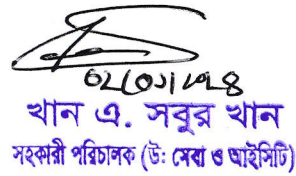 ০২/০১/২০২৪
খান এ. সবুর খান
সহকারী পরিচালক (উ: সেবা ও আইসিটি)